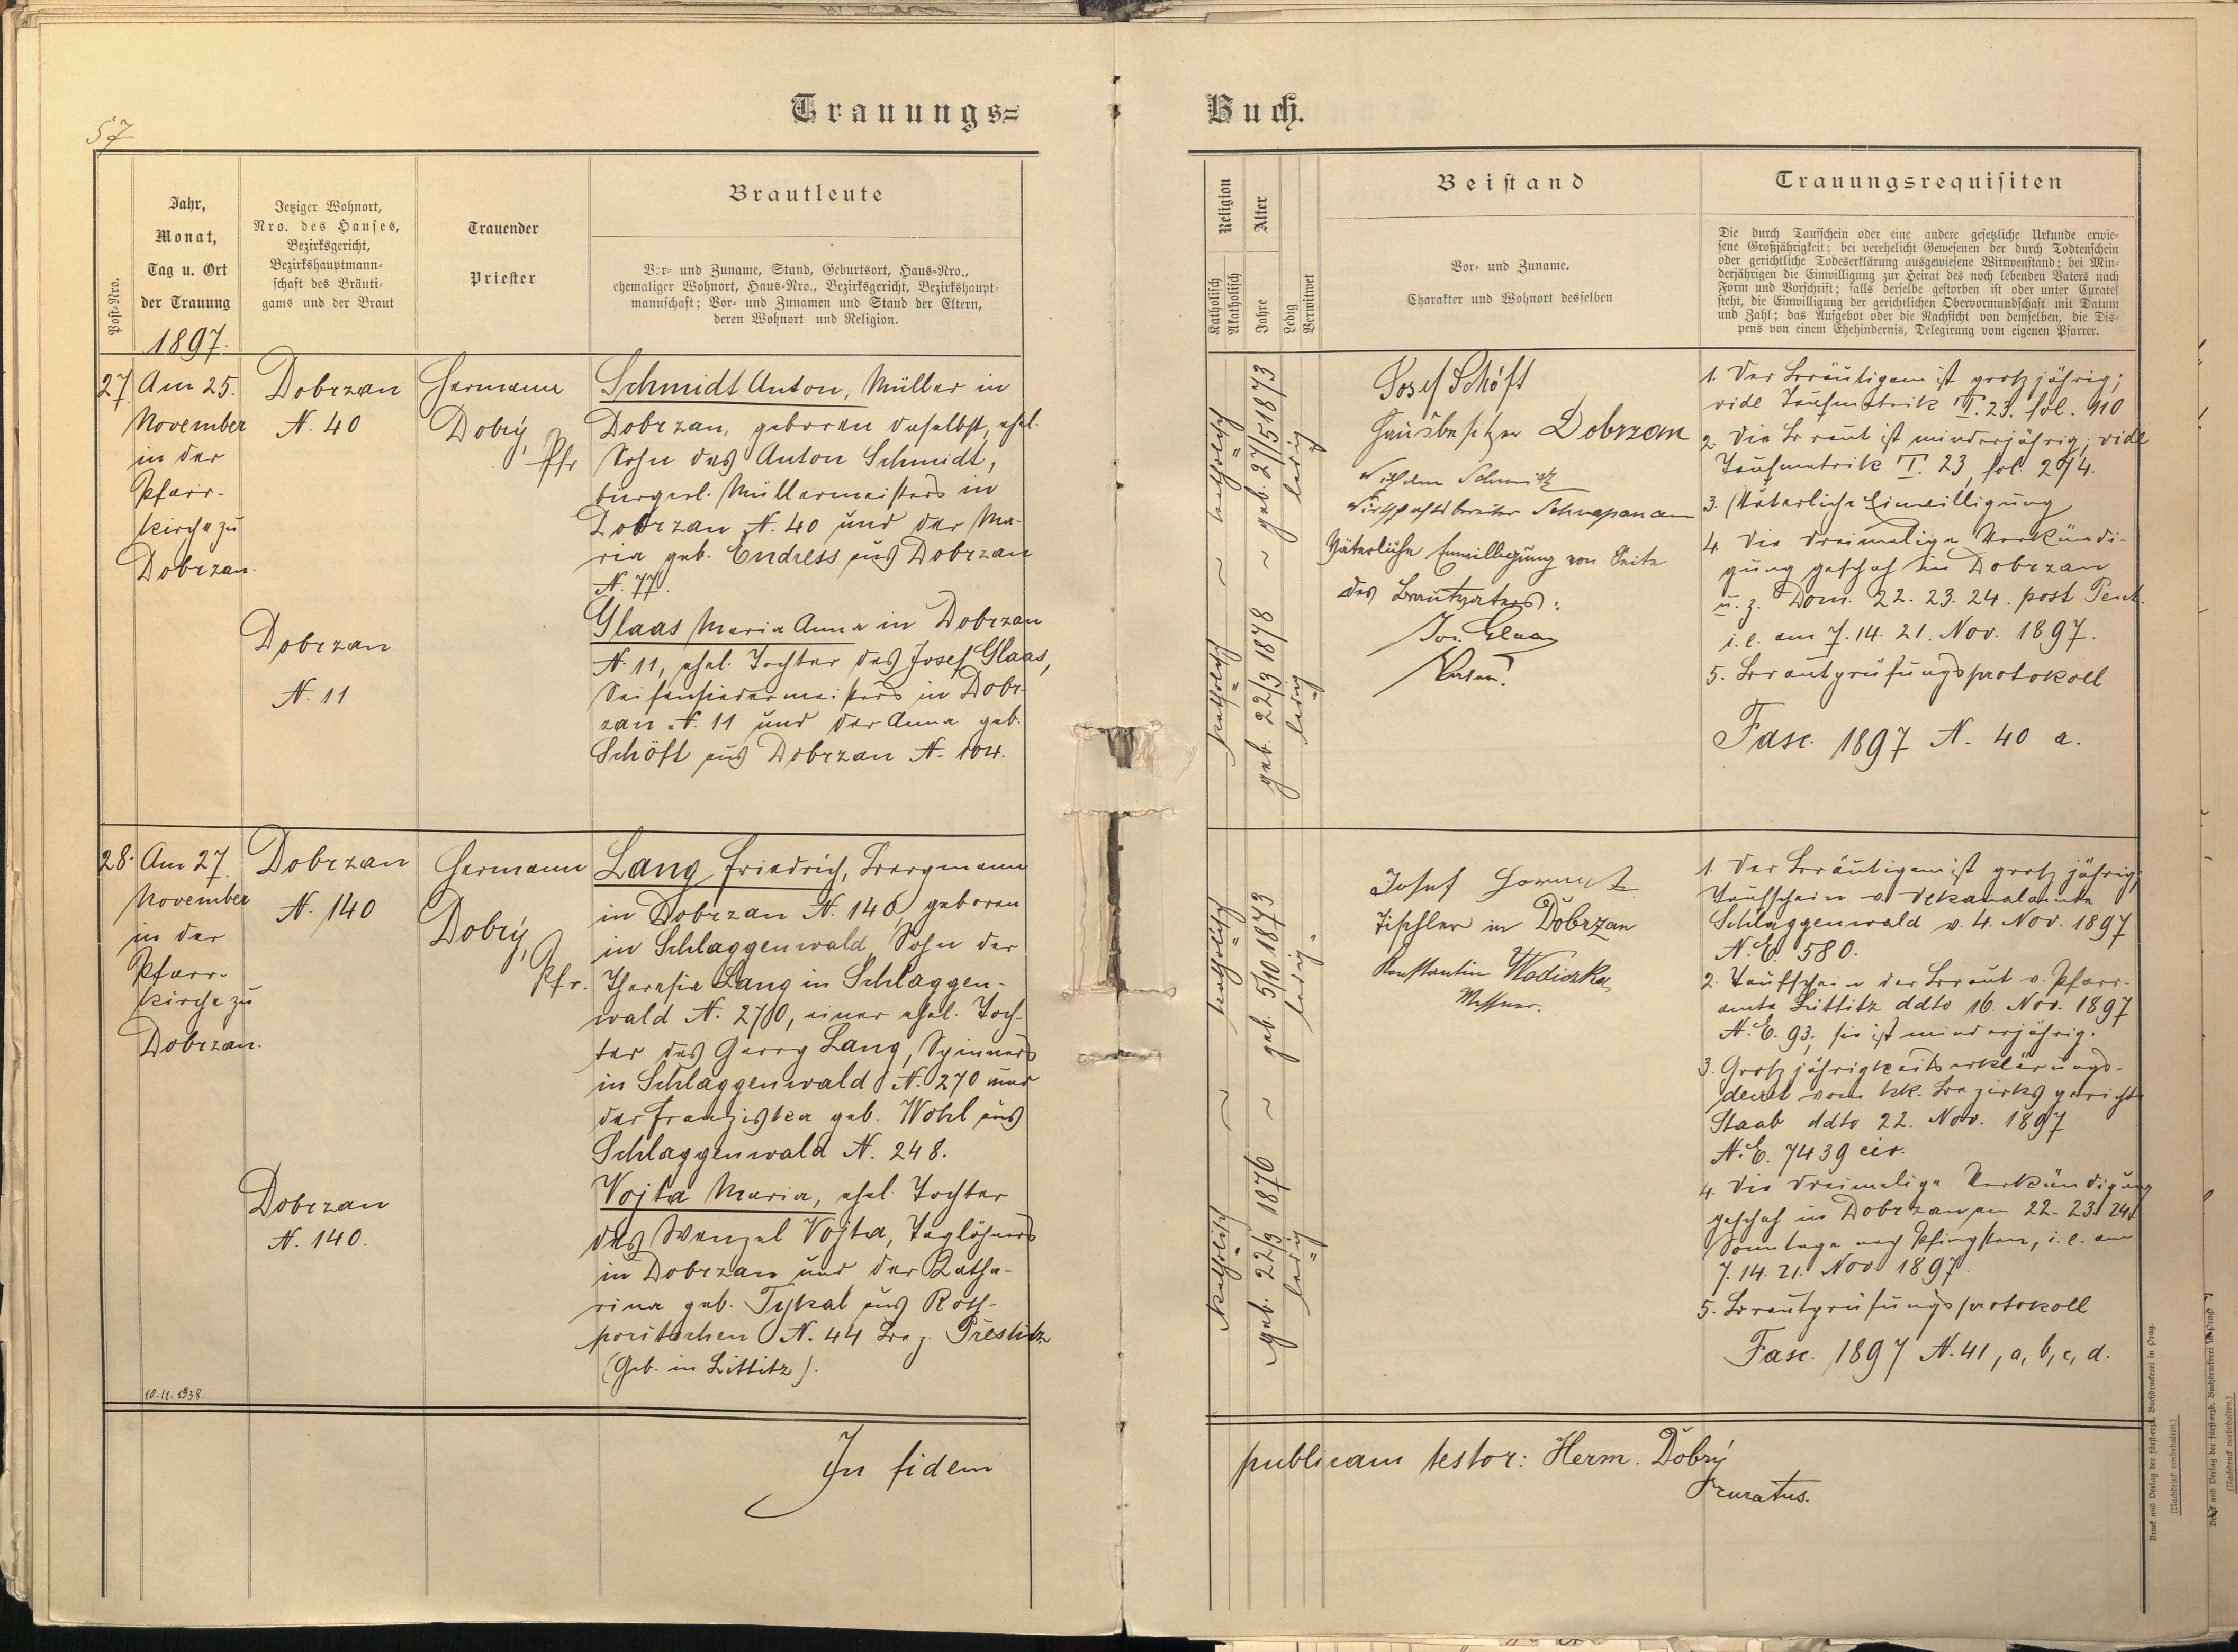 57
Trauungs=
Post-Nro.
Jahr,
Monat,
Tag u. Ort
der Trauung
1897.
Jetziger Wohnort,
Nro. des Hauses,
Bezirksgericht,
Bezirkshauptmann-
schaft des Bräuti-
gams und der Braut
Trauender
Priester
Brautleute
Vor- und Zuname, Stand, Geburtsort, Haus-Nro.,
ehemaliger Wohnort, Haus-Nro., Bezirksgericht, Bezirkshaupt-
mannschaft; Vor- und Zunamen und Stand der Eltern,
deren Wohnort und Religion.
27.
Am 25.
November
in der
Pfarr-
kirche zu
Dobrzan.
Dobrzan
N. 40
Dobrzan
N. 11
Hermann
Dobrý,
Pfr
Schmidt Anton, Müller in
Dobrzan, geboren daselbst, ehel.
Sohn des Anton Schmidt,
bürgerl. Müllermeisters in
Dobrzan N. 40 und der Ma-
ria geb. Endress aus Dobrzan
N. 77.
Glaas Maria Anna in Dobrzan
N. 11, ehel. Tochter des Josef Glaas,
Seifensiedermeisters in Dobr-
zan N. 11 und der Anna geb.
Schöft aus Dobrzan N. 104.
28.
Am 27.
November
in der
Pfarr-
kirche zu
Dobrzan.
10.11.1938.
Dobrzan
N. 140
Dobrzan
N. 140.
Hermann
Dobrý,
Pfr.
Lang Friedrich, Bergmann
in Dobrzan N. 140, geboren
in Schlaggenwald, Sohn der
Theresia Lang in Schlaggen-
wald N. 270, einer ehel. Toch-
ter des Georg Lang, Spinners
in Schlaggenwald N. 270 und
der Franziska geb. Wohl aus
Schlaggenwald N. 248.
Vojta Maria, ehel. Tochter
des Wenzel Vojta, Taglöhners
in Dobrzan und der Katha-
rina geb. Tykal aus Roth-
poritschen N. 44 Bez. Prestitz
(Geb. in Littitz).
In fidem
Buch.
Religion
Katholisch
Akatholisch
Alter
Jahre
Ledig
Verwitwet
Beistand
Vor- und Zuname,
Charakter und Wohnort desselben
Trauungsrequisiten
Die durch Taufschein oder eine andere gesetzliche Urkunde erwie-
sene Großjährigkeit; bei verehelicht Gewesenen der durch Todtenschein
oder gerichtliche Todeserklärung ausgewiesene Wittwenstand; bei Min-
derjährigen die Einwilligung zur Heirat des noch lebenden Vaters nach
Form und Vorschrift; falls derselbe gestorben ist oder unter Curatel
steht, die Einwilligung der gerichtlichen Obervormundschaft mit Datum
und Zahl; das Aufgebot oder die Nachsicht von demselben, die Dis-
pens von einem Ehehindernis, Delegirung vom eigenen Pfarrer.
katholisch ~ katholisch
geb. 22/3 1878 ~ geb. 27/5 1873
ledig ledig
Josef Schöft
Hausbesitzer Dobrzan
Schmidt
Väterliche Einwilligung von Seite
des Brautvaters:
Jos. Glaas
Vater.
1. Der Bräutigam ist großjährig;
vide Taufmatrik T. 23. fol. 110
2. Die Braut ist minderjährig; vide
Taufmatrik T. 23, fol. 274.
3. Väterliche Einwilligung
4. Die dreimalige Verkündi-
gung geschah in Dobrzan
u. z. Dom. 22. 23. 24. post Pent.
i. e. am 7. 14. 21. Nov. 1897.
5. Brautprüfungsprotokoll
Fasc. 1897 N. 40 a.
katholisch ~ katholisch
geb. 22/9 1876 ~ geb. 5/10 1873
ledig ledig
Josef
Tischler in Dobrzan
Konstantin Wodiczka
Messner.
1. Der Bräutigam ist großjährig;
Taufschein v. Dekanalamte
Schlaggenwald v. 4. Nov. 1897
N. E. 580.
2. Taufschein der Braut v. Pfarr-
amte Littitz ddto 16. Nov. 1897
N. E. 93; sie ist minderjährig.
3. Großjährigkeitserklärungs-
decret vom kk. Bezirksgericht
Staab ddto 22. Nov. 1897
N. E. 7439 civ.
4. Die dreimalige Verkündigung
geschah in Dobrzan am 22. 23. 24.
Sonntage nach Pfingsten, i. e. am
7. 14. 21. Nov. 1897
5. Brautprüfungsprotokoll
Fasc. 1897 N. 41, a, b, c, d.
publicam testor: Herm. Dobrý
curatus.
Druck und Verlag der fürst-erzb. Buchdruckerei in Prag.
(Nachdruck vorbehalten.)
Druck und Verlag der fürst-erzb. Buchdruckerei in Prag.
(Nachdruck vorbehalten.)